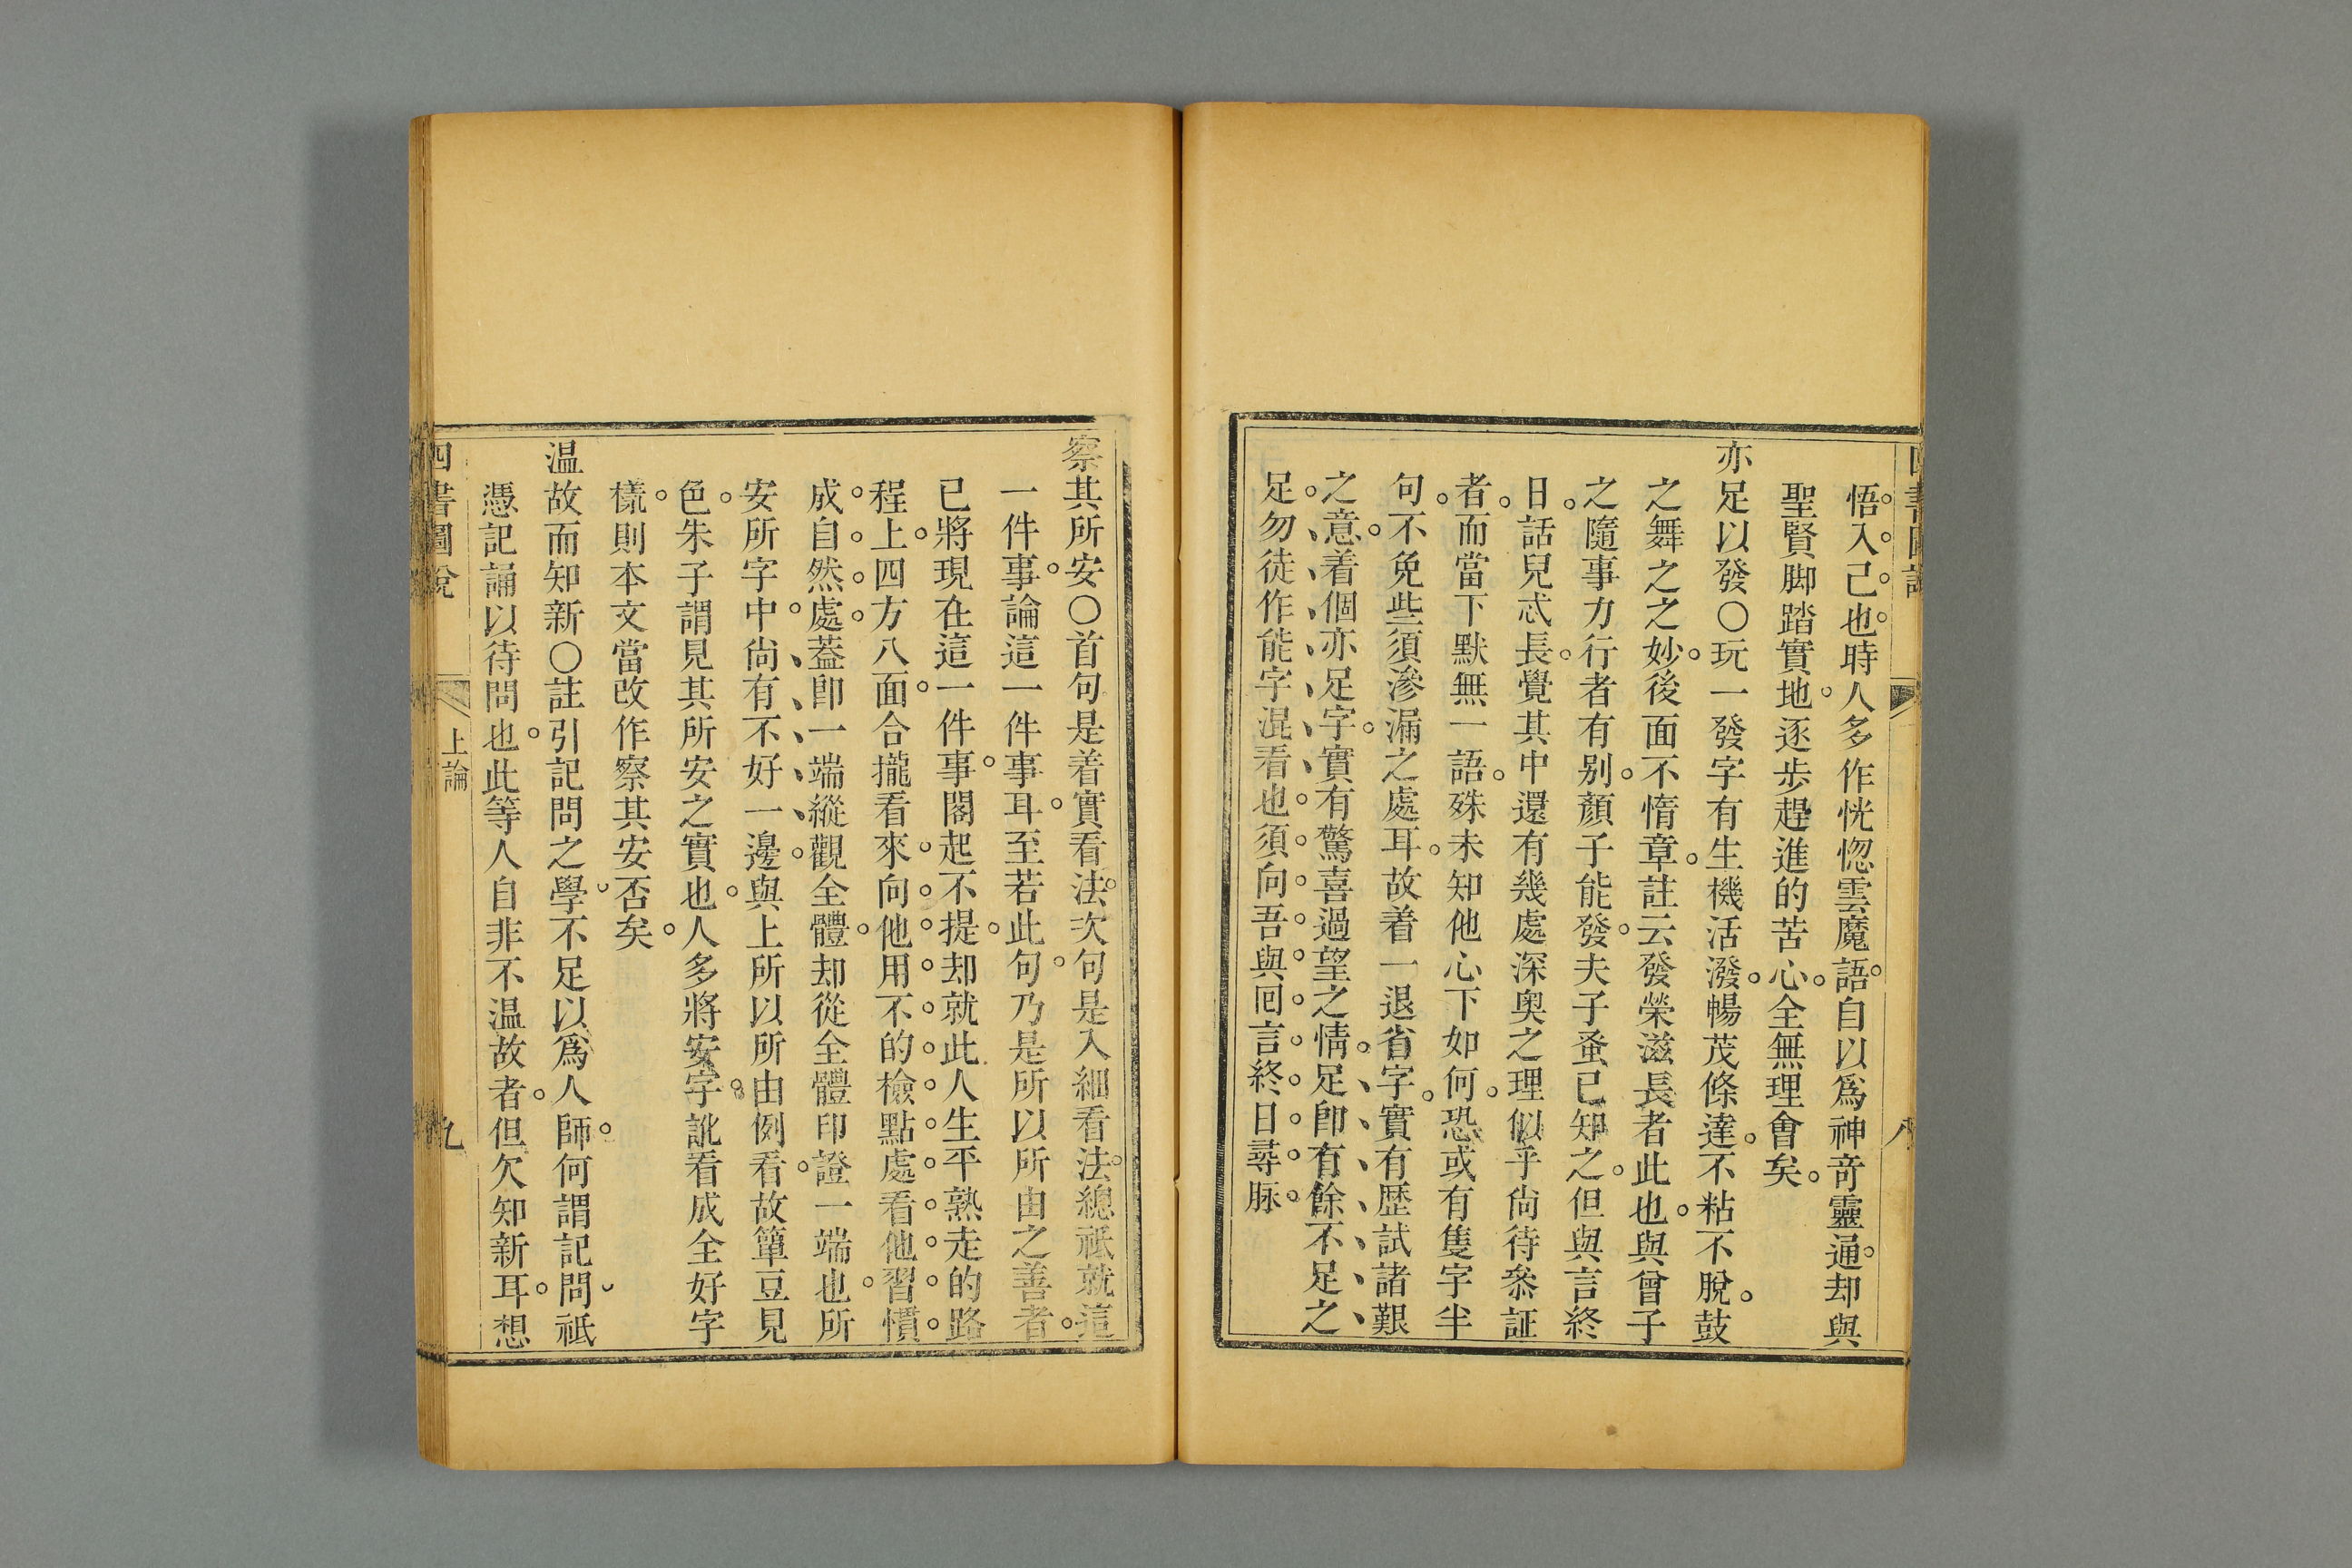 悟入己也時人多作恍惚雲魔語自以爲神竒靈通却與
聖賢脚踏實地逐步趕進的苦心全無理會矣
亦足以發○玩一發字有生機活潑暢茂條達不粘不脫鼓
之舞之之妙後面不惰章註云發榮滋長者此也與曾子
之隨事力行者有别顏子能發夫子蚤已知之但與言終
日話兒忒長覺其中還有幾處深奥之理似乎尙待叅証
者而當下默無一語殊未知他心下如何恐或有隻字半
句不免些須滲漏之處耳故着一退省字實有歷試諸艱
之意着個亦足字實有驚喜過望之情足卽有餘不足之
足勿徒作能字混看也須向吾與囘言終日尋脉
八
察其所安○首句是着實看法次句是入細看法總祗就這
一件事論這一件事耳至若此句乃是所以所由之善者
已將現在這一件事閣起不提却就此人生平熟走的路
程上四方八面合攏看來向他用不的檢點處看他習慣
成自然處蓋卽一端縱觀全體却從全體印證一端也所
安所字中尙有不好一邊與上所以所由例看故簞豆見
色朱子謂見其所安之實也人多將安字訛看成全好字
樣則本文當改作察其安否矣
温故而知新○註引記問之學不足以爲人師何謂記問祗
憑記誦以待問也此等人自非不温故者但欠知新耳想
四書圖說
上論
九